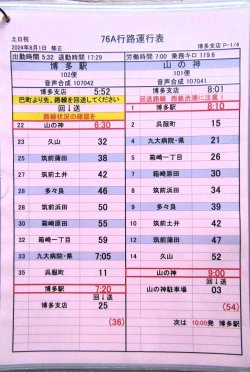 土日祝
76A行路運行表
2024年8月1日 修正
博多支店 P-1/4
出勤時間 5:32 退勤時間 17:29
労働時間 7:00 乗務キロ 119.6
博多駅
102便
音声合成 107042
博多支店 5:52
巴町より先、路線を回送してください
回⇩送
路線状況の確認を
22 山の神 6:30
23 久山 32
25 筑前蒲田 38
26 筑前土井 42
28 多々良 46
29 筑前浜田 50
30 箱崎原田 55
32 箱崎一丁目 59
33 九大病院・県 7:05
35 呉服町 11
博多駅 7:20
回⇩送
博多支店 25
(36)
山の神
101便
音声合成 107041
博多支店 8:01
回送路線 西鉄渋滞に注意!
回⇩送
1 博多駅 8:10
2 呉服町 15
4 九大病院・県 21
5 箱崎一丁目 26
7 箱崎原田 30
8 筑前浜田 34
9 多々良 39
10 筑前土井 42
12 筑前蒲田 47
14 久山 52
山の神 9:00
回⇩送
山の神駐車場 03
(54)
次は 10:00発 博多駅